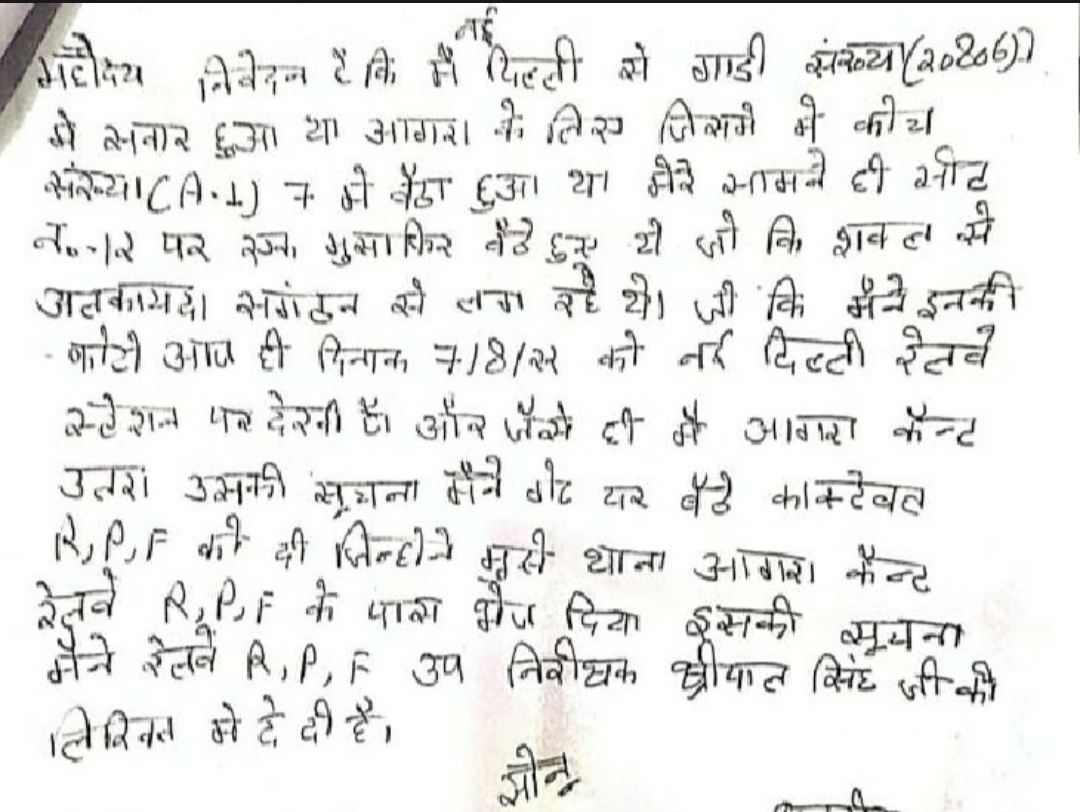 नई
महोदय निवेदन है कि मैं दिल्ली से गाडी संख्या (20806)
मे सवार हुआ था आगरा के लिए जिसमे मे कोच
संख्या (A-1) 7 मे बैठा हुआ था मेरे सामने ही सीट
नं०-12 पर एक मुसाफिर बैठे हुए थे जो कि शक्ल से
अलकायदा संगठन से लग रहे थे। जो कि मैंने इनकी
फोटो आज ही दिनाक 7/8/22 को नई दिल्ली रेलवे
स्टेशन पर देखी है। और जैसे ही मै आगरा कैन्ट
उतरा उसकी सूचना मैंने गेट पर बैठे कान्स्टेबल
R,P,F को दी जिन्होने मुझे थाना आगरा कैन्ट
रेलवे R,P,F के पास भेज दिया इसकी सूचना
मैंने रेलवे R,P,F उप निरीक्षक श्रीपाल सिंह जी को
लिखित मे दे दी है।
सोनू